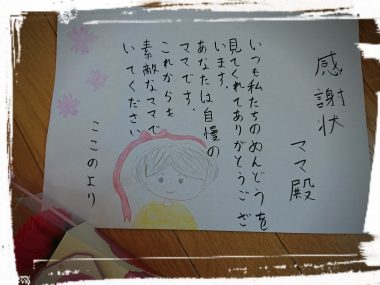 感謝状
ママ殿
いつも私たちのめんどうを
見てくれてありがとうござ
います。
あなたは自慢の
ママです。
これからも
素敵なママで
いてください
ここのより